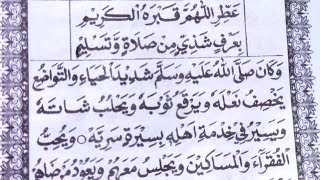 عَطِّرِ اللّٰهُمَّ قَبْرَهُ الْكَرِيْمَ
بِعَرْفٍ شَذِيٍّ مِنْ صَلَاةٍ وَّتَسْلِيْمٍ
وَكَانَ صَلَّى اللّٰهُ عَلَيْهِ وَسَلَّمَ شَدِيْدَ الْحَيَاءِ وَالتَّوَاضُعِ
يَخْصِفُ نَعْلَهُ وَيَرْقَعُ ثَوْبَهُ وَيَحْلُبُ شَاتَهُ
وَيَسِيْرُ فِيْ خِدْمَةِ اَهْلِهِ بِسِيْرَةٍ سَرِيَّةٍ ○ وَيُحِبُّ
الْفُقَرَاءَ وَالْمَسَاكِيْنَ وَيَجْلِسُ مَعَهُمْ وَيَعُوْدُ مَرْضَاهُمْ